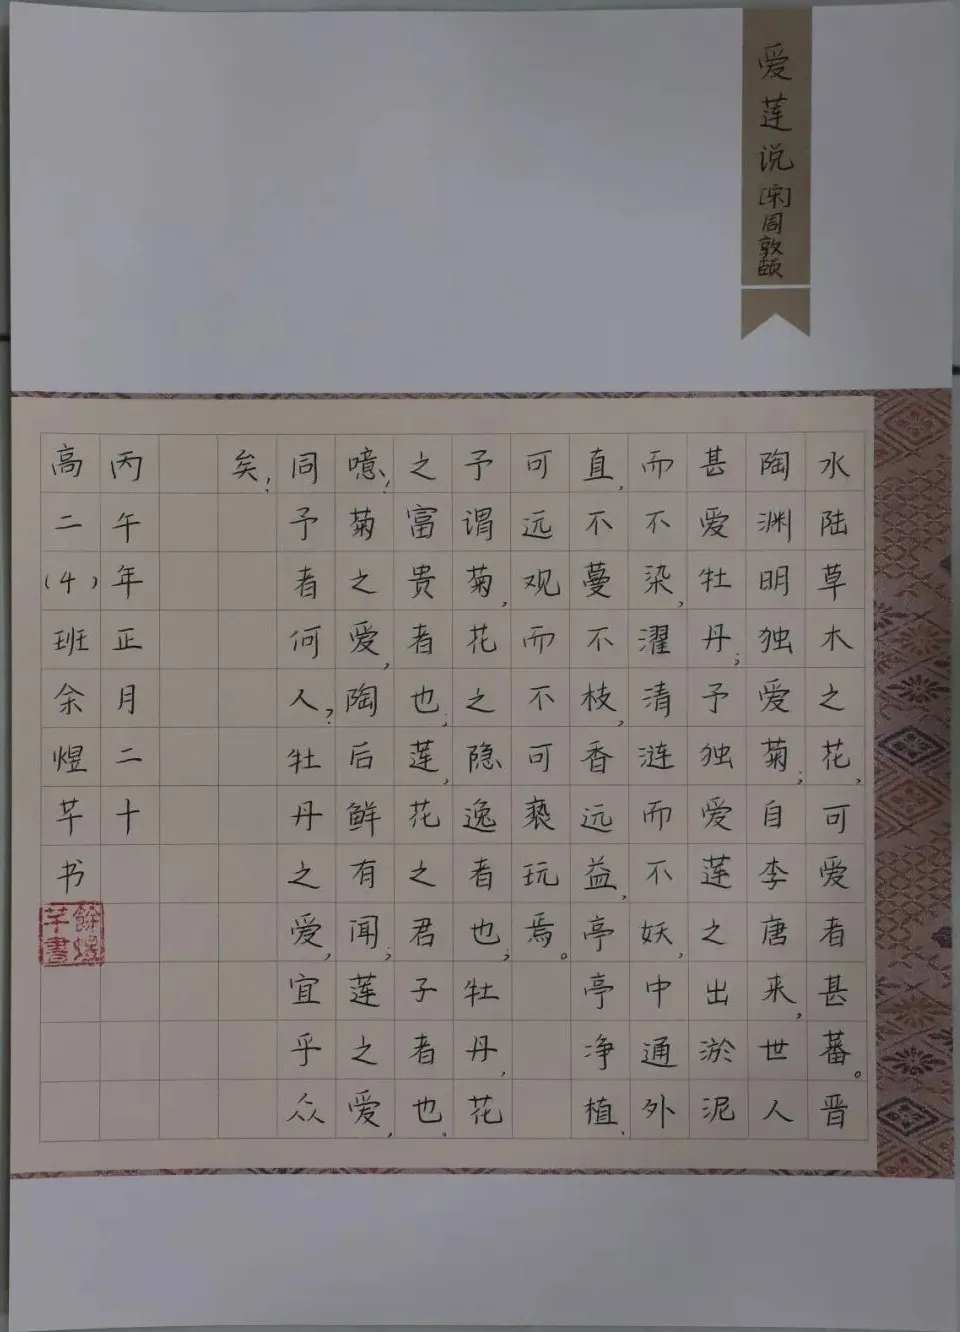 爱莲说
[宋]周敦颐
水陆草木之花，可爱者甚蕃。晋
陶渊明独爱菊；自李唐来，世人
甚爱牡丹；予独爱莲之出淤泥
而不染，濯清涟而不妖，中通外
直，不蔓不枝，香远益，亭亭净植，
可远观而不可亵玩焉。
予谓菊，花之隐逸者也；牡丹，花
之富贵者也；莲，花之君子者也。
噫！菊之爱，陶后鲜有闻；莲之爱，
同予者何人？牡丹之爱，宜乎众
矣！
丙午年正月二十
高二（4）班余煜芊书
餘煜芊書